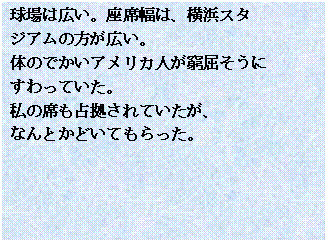 球場は広い。座席幅は、横浜スタ
ジアムの方が広い。
体のでかいアメリカ人が窮屈そうに
すわっていた。
私の席も占拠されていたが、
なんとかどいてもらった。